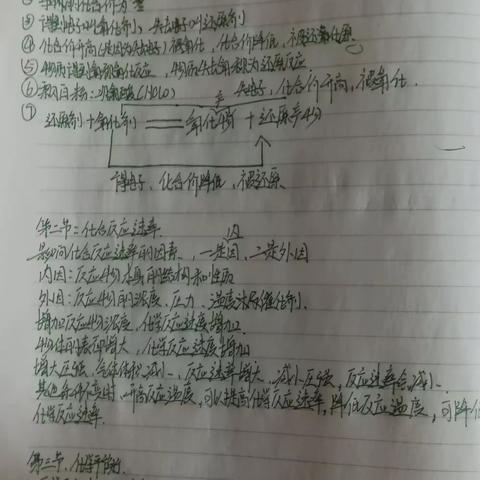 ③ 得电子叫氧化剂，失去电子叫还原剂
④ 化合价升高(是因为失电子)被氧化，化合价降低，被还氧化原。
⑤ 物质得到氧称氧化反应，物质失去氧称为还原反应
⑥ 次氯酸(HClO) 失电子，化合价升高，被氧化.
⑦ 还原剂＋氧化剂 ══ 氧化产物＋还原产物
得电子、化合价降低、被还原.
第二节：化合反应速率.
影响化合反应速率的因素、一是内因、二是外因
内因：反应物本身的结构和性质
外因：反应物的浓度、压力、温度以及催化剂.
增加反应物浓度，化学反应速度增加.
物体的表面增大，化学反应速度增加
增大压强、气体体积减小、反应速率增大、减小压强，反应速率会减小.
其他条件不变时，升高反应温度，可以提高化学反应速率，降低反应温度，可降低
化学反应速率.
第三节、化学平衡.